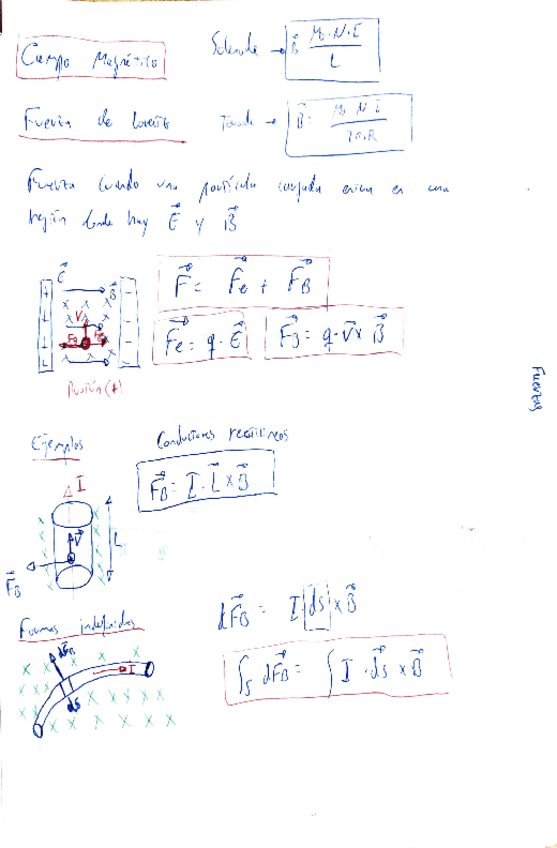 Campo Magnético
Solenoide → B⃗ = μ₀·N·I / L
Fuerza de Lorentz
Toroide → B⃗ = μ₀ N I / 2π·R
Fuerza cuando una partícula cargada entra en una
región donde hay E⃗ y B⃗
F⃗ = F⃗e + F⃗B
F⃗e = q · E⃗
F⃗B = q · v⃗ × B⃗
E⃗
B⃗
V
FB
Fe
(+)
Fuerzas
Ejemplos
Conductores rectilíneos
F⃗B = I · L⃗ × B⃗
I⃗
L
V⃗
F⃗B
Formas indefinidas
dF⃗B = I ds⃗ × B⃗
∫s dF⃗B = ∫ I · ds⃗ × B⃗
dF⃗B
I
ds